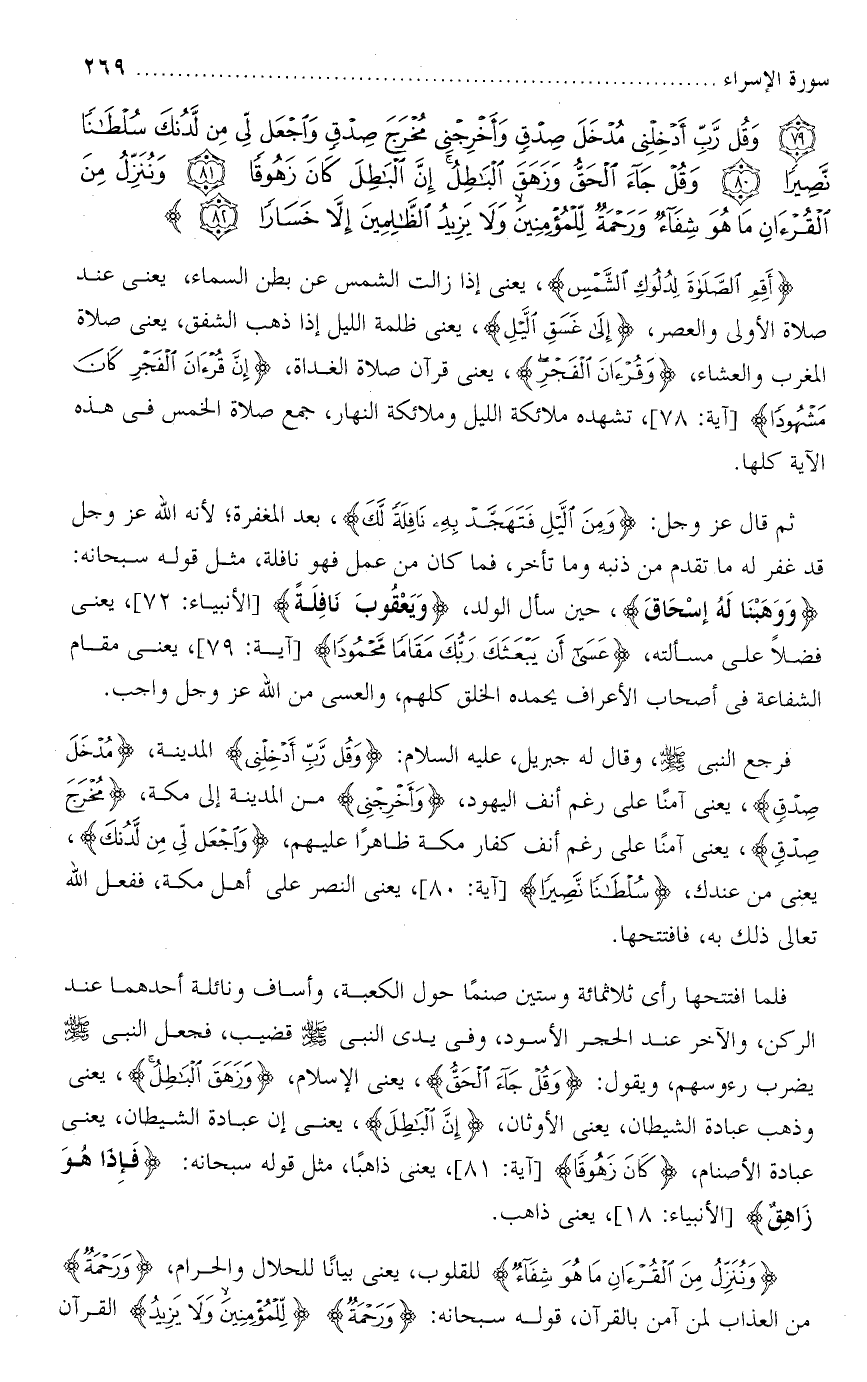 سورة الإسراء ................................................................ ٢٦٩
﴿٧٩﴾ وَقُل رَّبِّ أَدْخِلْنِى مُدْخَلَ صِدْقٍ وَأَخْرِجْنِى مُخْرَجَ صِدْقٍ وَٱجْعَل لِّى مِن لَّدُنكَ سُلْطَٰنًا
نَّصِيرًا ﴿٨٠﴾ وَقُلْ جَآءَ ٱلْحَقُّ وَزَهَقَ ٱلْبَٰطِلُ ۚ إِنَّ ٱلْبَٰطِلَ كَانَ زَهُوقًا ﴿٨١﴾ وَنُنَزِّلُ مِنَ
ٱلْقُرْءَانِ مَا هُوَ شِفَآءٌ وَرَحْمَةٌ لِّلْمُؤْمِنِينَ ۙ وَلَا يَزِيدُ ٱلظَّٰلِمِينَ إِلَّا خَسَارًا ﴿٨٢﴾ ﴾
﴿أَقِمِ ٱلصَّلَوٰةَ لِدُلُوكِ ٱلشَّمْسِ﴾، يعنى إذا زالت الشمس عن بطن السماء، يعنى عند
صلاة الأولى والعصر، ﴿إِلَىٰ غَسَقِ ٱلَّيْلِ﴾، يعنى ظلمة الليل إذا ذهب الشفق، يعنى صلاة
المغرب والعشاء، ﴿وَقُرْءَانَ ٱلْفَجْرِ ۖ﴾، يعنى قرآن صلاة الغداة، ﴿إِنَّ قُرْءَانَ ٱلْفَجْرِ كَانَ
مَشْهُودًا﴾ [آية: ٧٨]، تشهده ملائكة الليل وملائكة النهار، جمع صلاة الخمس فى هذه
الآية كلها.
ثم قال عز وجل: ﴿وَمِنَ ٱلَّيْلِ فَتَهَجَّدْ بِهِۦ نَافِلَةً لَّكَ﴾، بعد المغفرة؛ لأنه الله عز وجل
قد غفر له ما تقدم من ذنبه وما تأخر، فما كان من عمل فهو نافلة، مثل قوله سبحانه:
﴿وَوَهَبْنَا لَهُ إِسْحَاقَ﴾، حين سأل الولد، ﴿وَيَعْقُوبَ نَافِلَةً﴾ [الأنبياء: ٧٢]، يعنى
فضلاً على مسألته، ﴿عَسَىٰٓ أَن يَبْعَثَكَ رَبُّكَ مَقَامًا مَّحْمُودًا﴾ [آية: ٧٩]، يعنى مقام
الشفاعة فى أصحاب الأعراف يحمده الخلق كلهم، والعسى من الله عز وجل واجب.
فرجع النبى ﷺ، وقال له جبريل، عليه السلام: ﴿وَقُل رَّبِّ أَدْخِلْنِى﴾ المدينة، ﴿مُدْخَلَ
صِدْقٍ﴾، يعنى آمنًا على رغم أنف اليهود، ﴿وَأَخْرِجْنِى﴾ من المدينة إلى مكة، ﴿مُخْرَجَ
صِدْقٍ﴾، يعنى آمنًا على رغم أنف كفار مكة ظاهرًا عليهم، ﴿وَٱجْعَل لِّى مِن لَّدُنكَ﴾،
يعنى من عندك، ﴿سُلْطَٰنًا نَّصِيرًا﴾ [آية: ٨٠]، يعنى النصر على أهل مكة، ففعل الله
تعالى ذلك به، فافتتحها.
فلما افتتحها رأى ثلاثمائة وستين صنمًا حول الكعبة، وأساف ونائلة أحدهما عند
الركن، والآخر عند الحجر الأسود، وفى يدى النبى ﷺ قضيب، فجعل النبى ﷺ
يضرب رءوسهم، ويقول: ﴿وَقُلْ جَآءَ ٱلْحَقُّ﴾، يعنى الإسلام، ﴿وَزَهَقَ ٱلْبَٰطِلُ ۚ﴾، يعنى
وذهب عبادة الشيطان، يعنى الأوثان، ﴿إِنَّ ٱلْبَٰطِلَ﴾، يعنى إن عبادة الشيطان، يعنى
عبادة الأصنام، ﴿كَانَ زَهُوقًا﴾ [آية: ٨١]، يعنى ذاهبًا، مثل قوله سبحانه: ﴿فَإِذَا هُوَ
زَاهِقٌ﴾ [الأنبياء: ١٨]، يعنى ذاهب.
﴿وَنُنَزِّلُ مِنَ ٱلْقُرْءَانِ مَا هُوَ شِفَآءٌ﴾ للقلوب، يعنى بيانًا للحلال والحرام، ﴿وَرَحْمَةٌ﴾
من العذاب لمن آمن بالقرآن، قوله سبحانه: ﴿وَرَحْمَةٌ﴾ ﴿لِّلْمُؤْمِنِينَ ۙ وَلَا يَزِيدُ﴾ القرآن